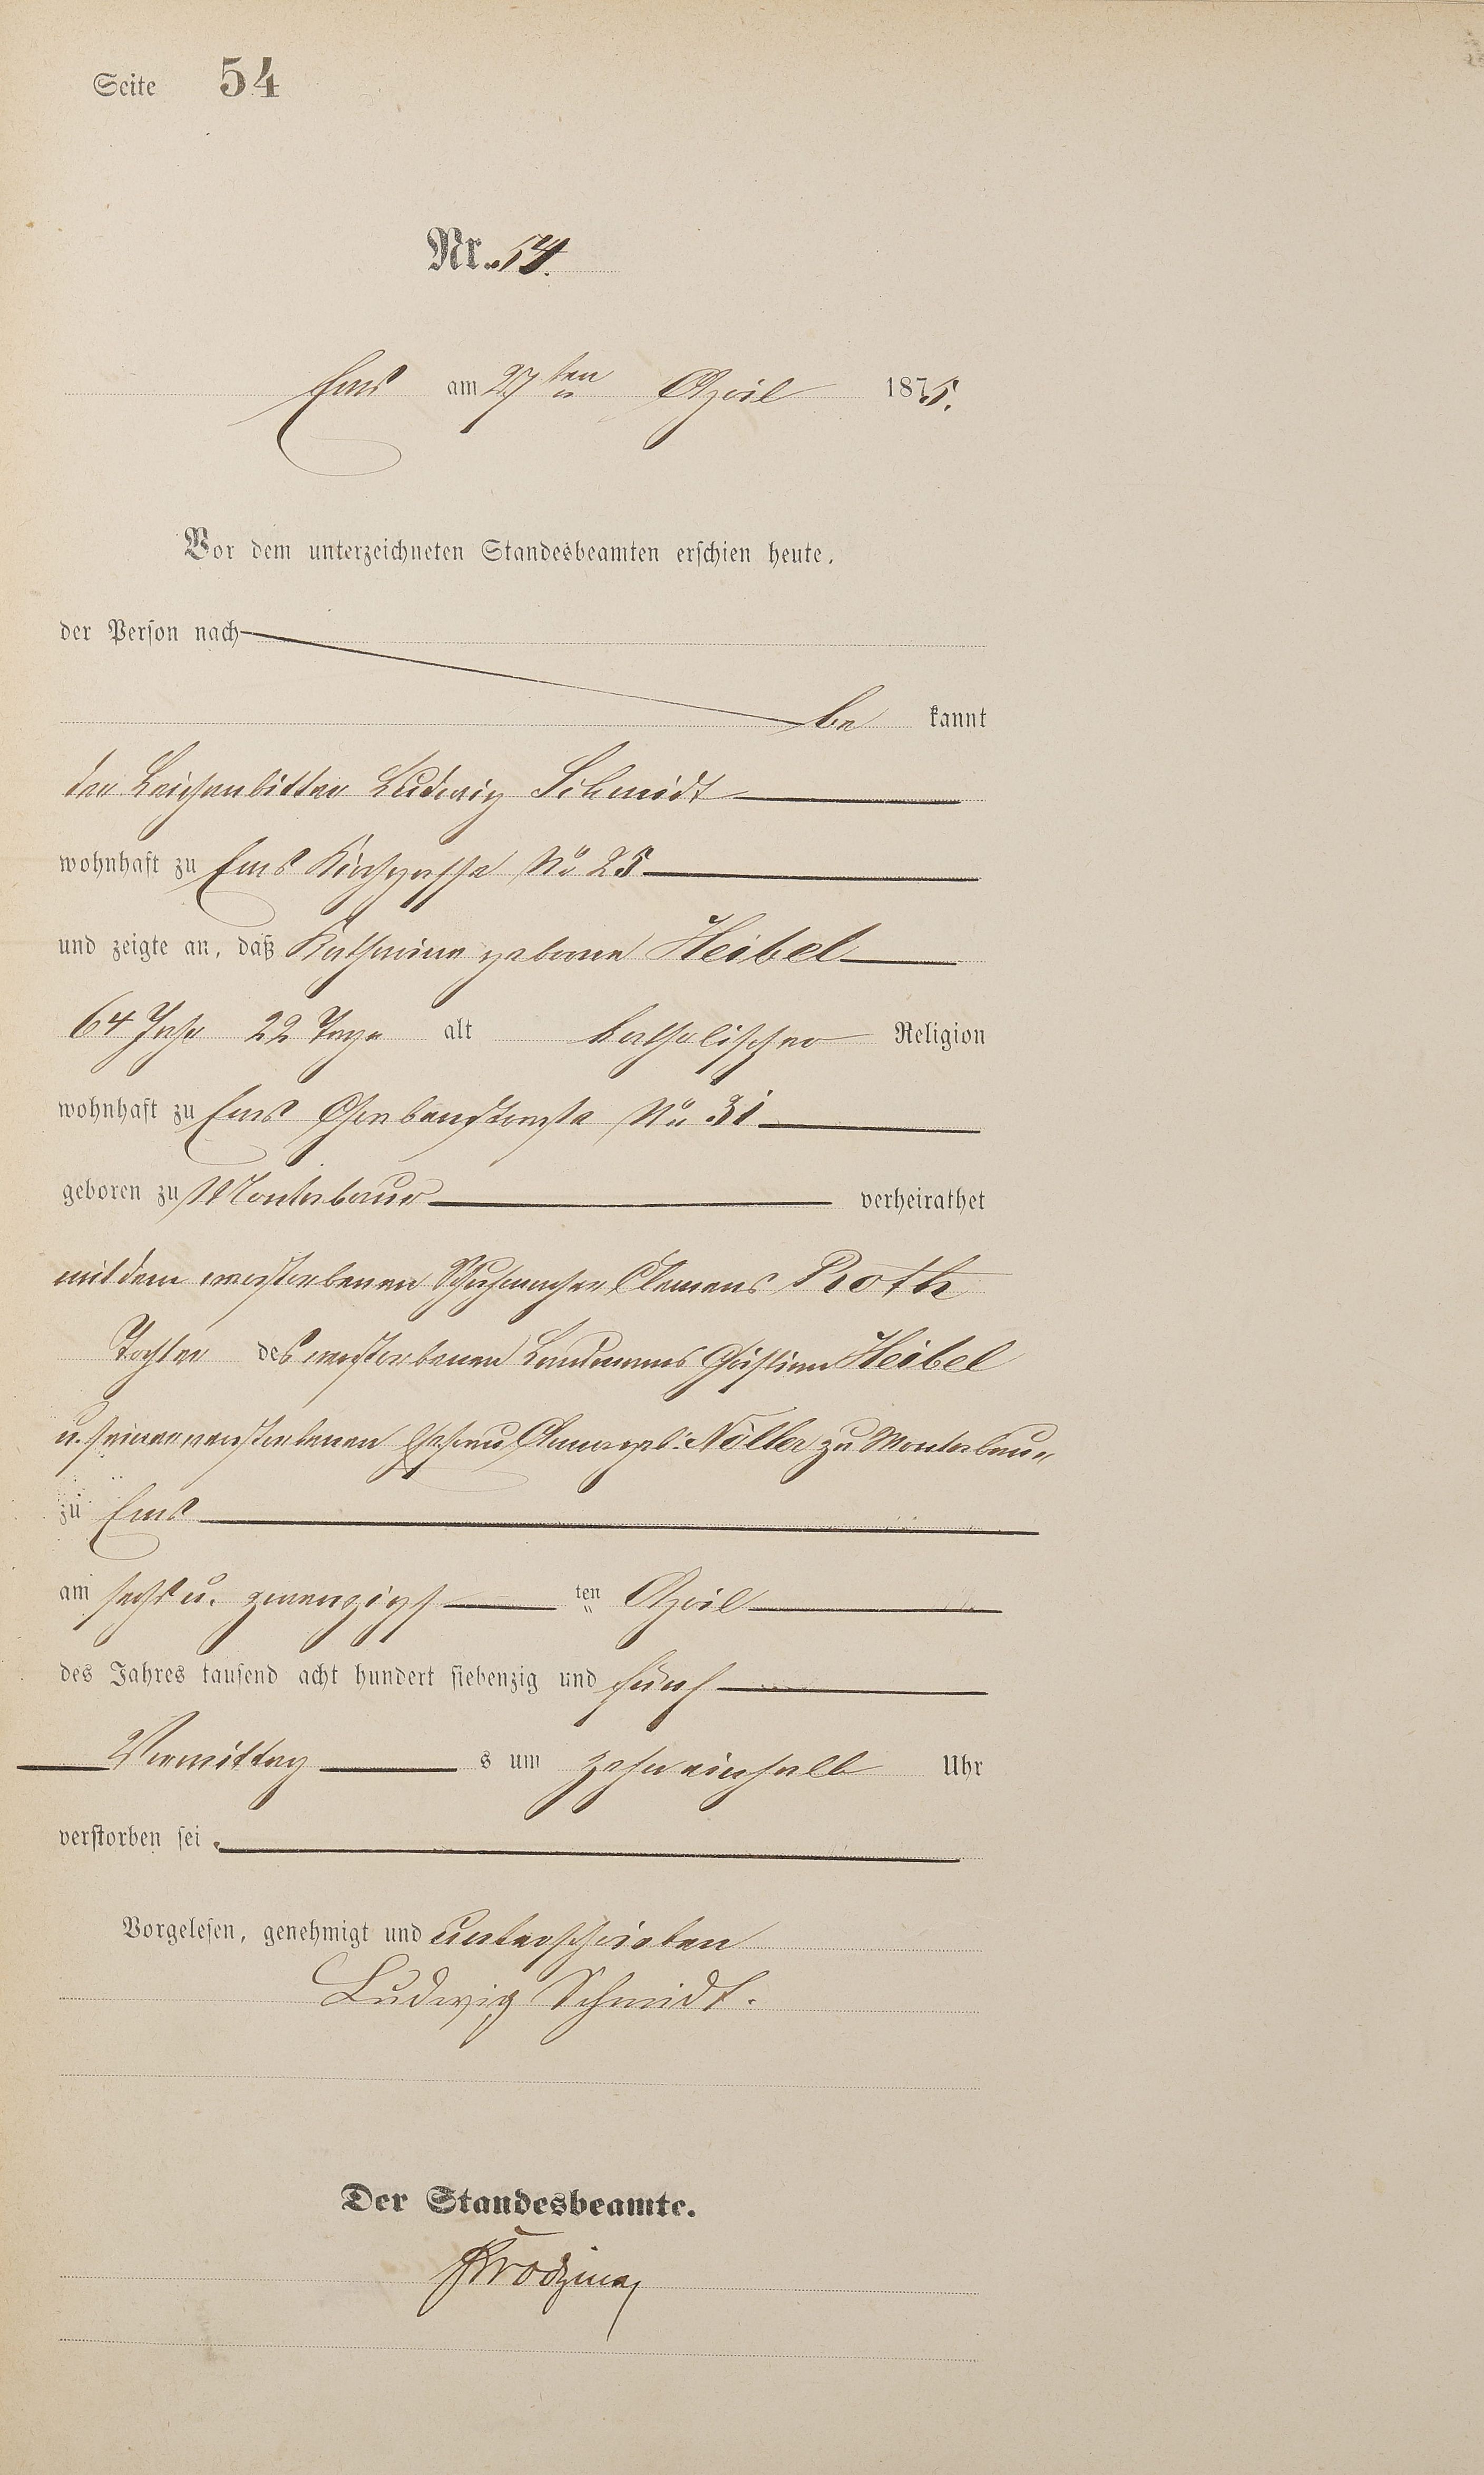 Seite 54
Nr. 54.
Ems am 27ten April 1875.
Vor dem unterzeichneten Standesbeamten erschien heute,
der Person nach
be kannt
der Leichenbitter Ludwig Schmidt
wohnhaft zu Ems Kirchgasse No 25
und zeigte an, daß Katharina geborne Heibel
64 Jahr 22 Tage alt katholischer Religion
wohnhaft zu Ems No 31
geboren zu Montabaur verheirathet
mit dem verstorbenen Schuhmacher Clemens Proth
Tochter des verstorbenen Landmanns Christian Heibel
u. seiner verstorbenen Ehefrau geb: Nöller zu Montabaur
zu Ems
am sechs u. zwanzigst ten April
des Jahres tausend acht hundert siebenzig und fünf
Vormittag s um zehn einhalb Uhr
verstorben sei.
Vorgelesen, genehmigt und unterschrieben
Ludwig Schmidt.
Der Standesbeamte.